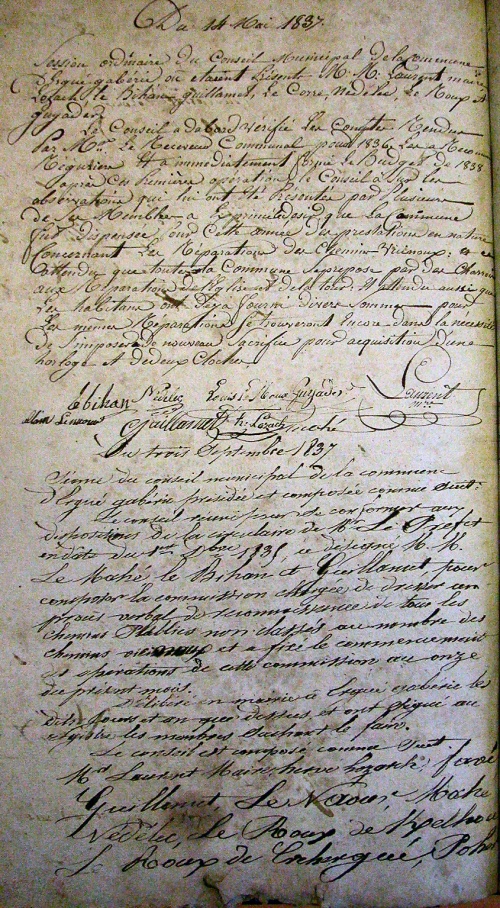 Du 14 Mai 1837
Session ordinaire du Conseil Municipal de la commune
D'Ergué gabéric où étaient Présents M.M. Laurent maire
Lozach, le Bihan, Guillamet, Le Corre, Nédelec Le Roux et
Guyader
Le Conseil a dabord Vérifié Les Comptes Rendus
Par Mr. Le Receveur Communal pour 1836, Les a Reconnu
Réguliere Et a immédiatement formé le Budget de 1838
après Ces Première opérations le Conseil a Sur les
observations qui lui ont été Présentée par Plusieurs
de Ses Membres a Exprimé que La Commune
fut dispensée pour Cette année des prestations en nature
Concernant Les Réparations des Chemins Vicinaux;
attendu que toute la Commune Se prepose par des Charrois
aux Réparations de l'Eglise et de la tour; Et attendu aussi que
Les habitans ont déja fourni divers Sommes pour
Les memes Réparations Se trouveront Encore dans la nécessité
de S'imposer de nouveau Sacrifice pour acquisition d'une
horloge Et de deux Cloches
Lebihan Nédélec Louis Le Roux Guyader Laurent
Guillamet h. Lozach mahé
Du trois Septembre 1837
Séance du conseil municipal de la commune
d'Ergué gabéric présidée et composée comme suit:
Le conseil réuni pour se conformer aux
dispositions de la circulaire de Mr. Le Préfet
en date du 1835 a désigné M.M.
Le Mahé, le Bihan et Guillamet pour
composer la commission chargée de dresser un
procès verbal de reconnaissance de tous les
chemins Publics non classés au nombre des
chemins vicinaux et a fixé le commencement
des opérations de cette commission au onze
du présent mois.
Délibéré en mairie à Ergué gabéric les
dits jours et an que dessus et ont signé au
registre les membres Sachant le faire.
Le conseil est composé comme suit
Mrs Laurent Maire, herve Lozach,
Guillamet, Le Naour, Mahé
Nédélec, Le Roux de Kdelhoue
L Roux de